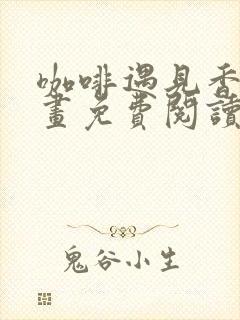 咖啡遇見香
畫免費閱讀
鬼谷小生